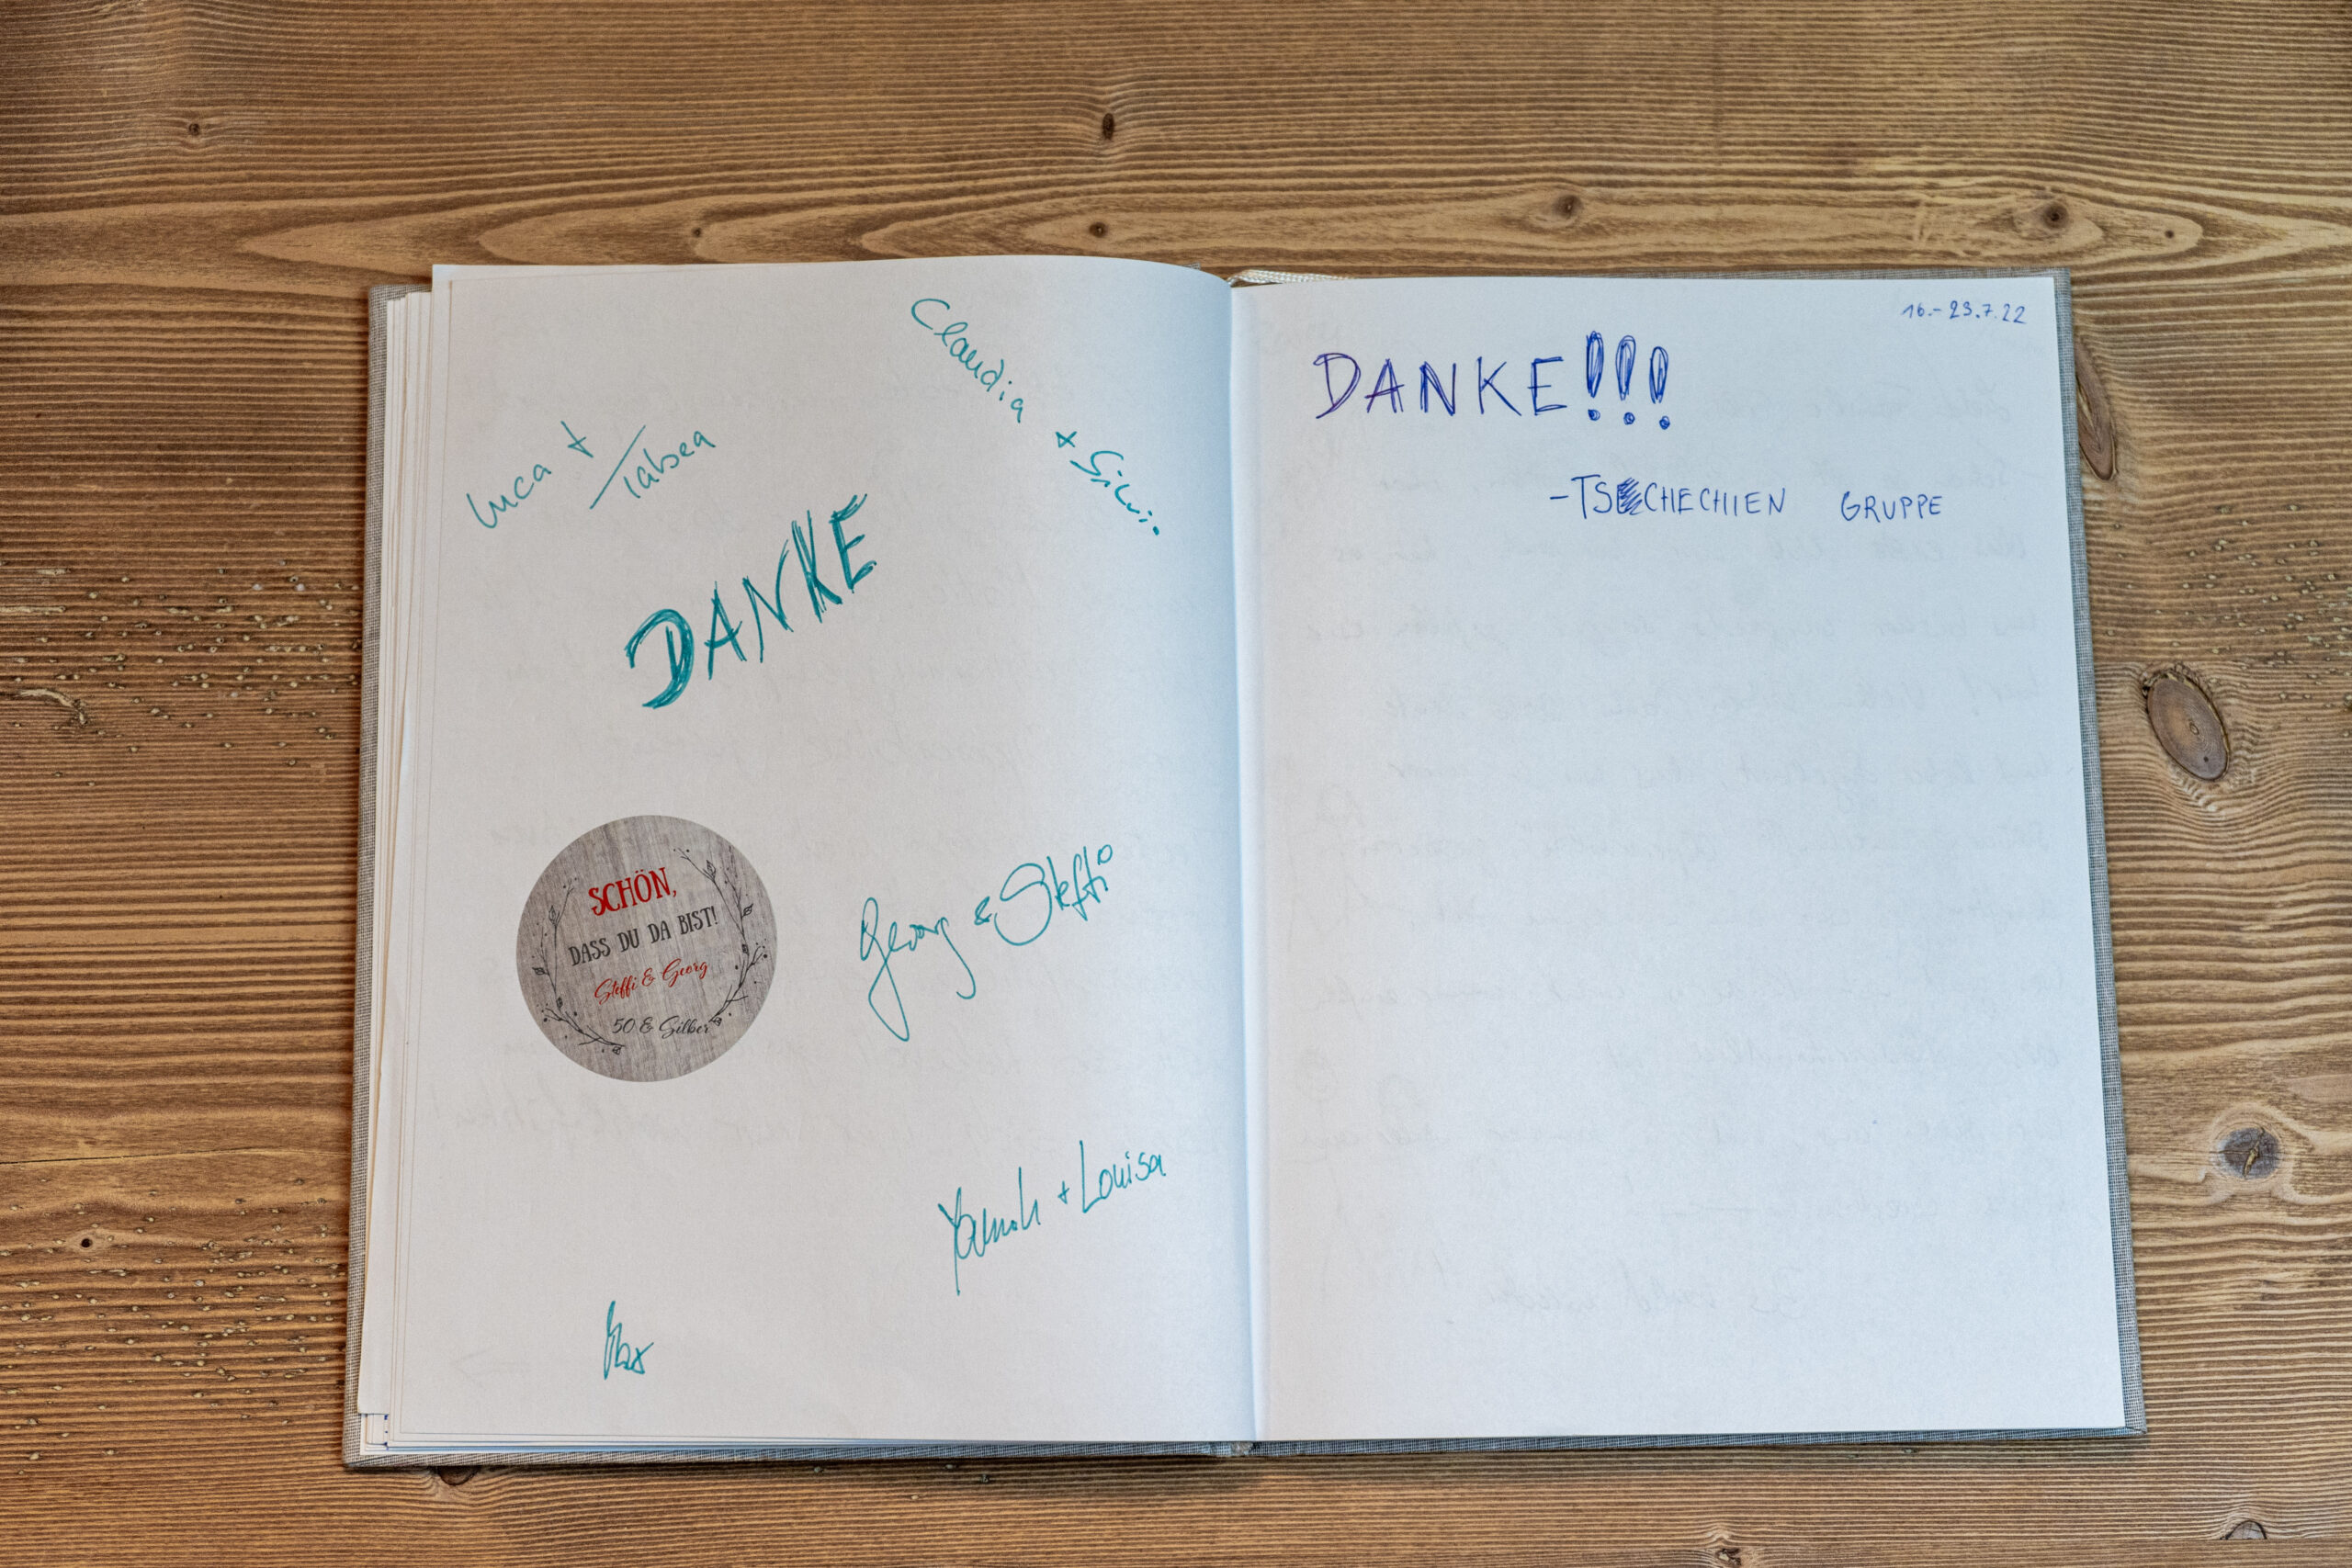 Claudia + Silvi.
Luca +
Tabea
DANKE
SCHÖN,
DASS DU DA BIST!
Steffi & Georg
50 & Silber
Georg & Steffi
Yannah + Louisa
Max
16.-23.7.22
DANKE!!!
-TSCHECHIEN GRUPPE